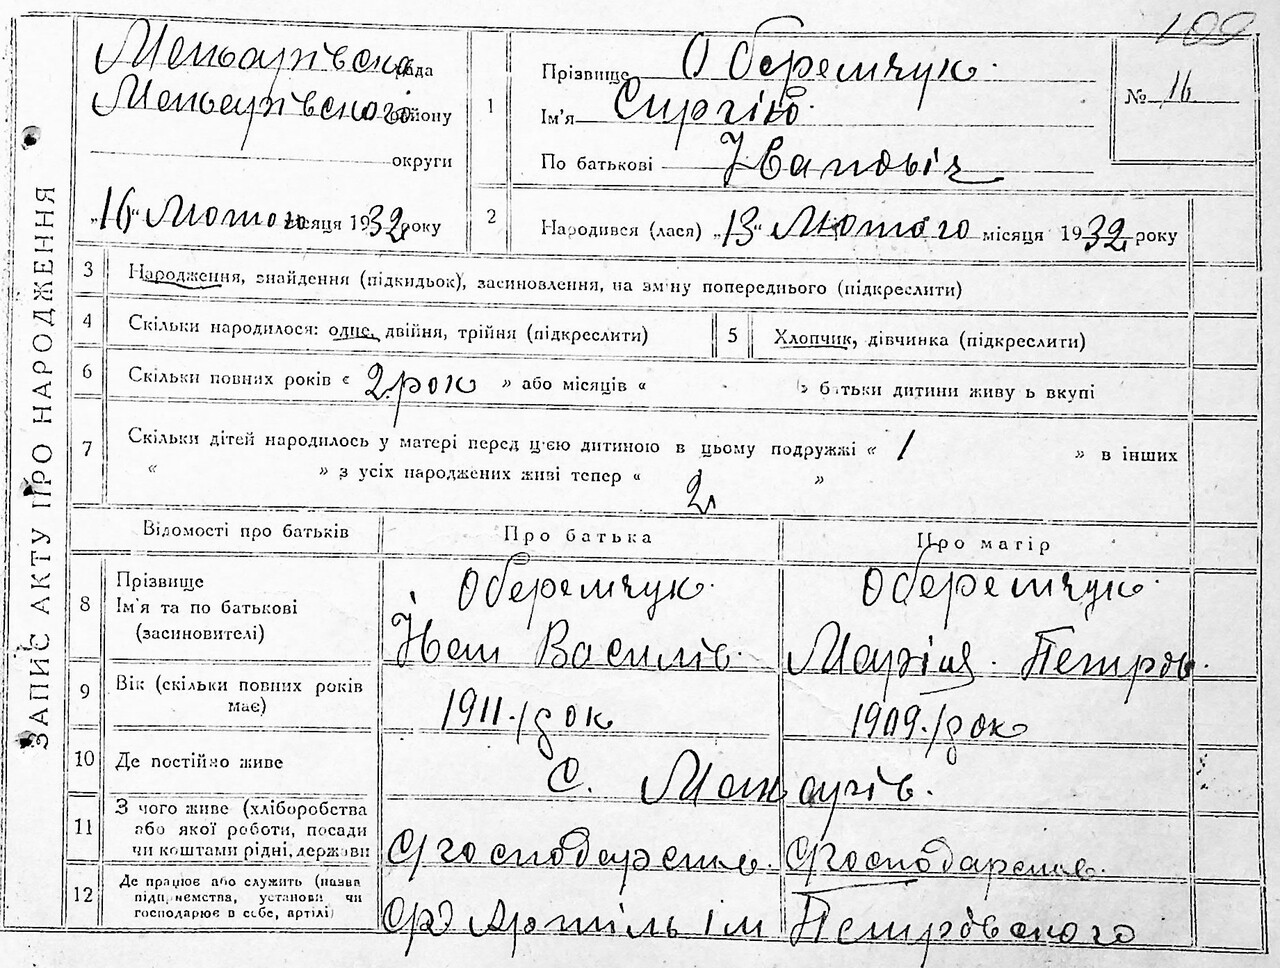 109
ЗАПИС АКТУ ПРО НАРОДЖЕННЯ
рада
району
округи
„16“ Лютого місяця 1932 року
1
Прізвище Оберемчук
Ім'я Сиргію
По батькові Івановіч
№ 16
2
Народився (лася) „13“ Лютого місяця 1932 року
3 Народження, знайдення (підкидьок), засиновлення, на зміну попереднього (підкреслити)
4 Скільки народилося: одне, двійня, трійня (підкреслити)
5 Хлопчик, дівчинка (підкреслити)
6 Скільки повних років є 2 рок » або місяців « » батьки дитини живуть вкупі
7 Скільки дітей народилось у матері перед цією дитиною в цьому подружжі « 1 » в інших
« » з усіх народжених живі тепер « 2 »
Відомості про батьків Про батька Про матір
8 Прізвище Оберемчук Оберемчук
Ім'я та по батькові
(засиновителі) Іван Василів Марія Петров
9 Вік (скільки повних років
має) 1911 рок 1909 рок
10 Де постійно живе С. Макарів
11 З чого живе (хліборобства
або якої роботи, посади
чи коштами рідні, держави
с/господарством с/господарством
12 Де працює або служить (назва
підприємства, установи чи
господарює в себе, артілі)
с/г Артіль ім Петровського